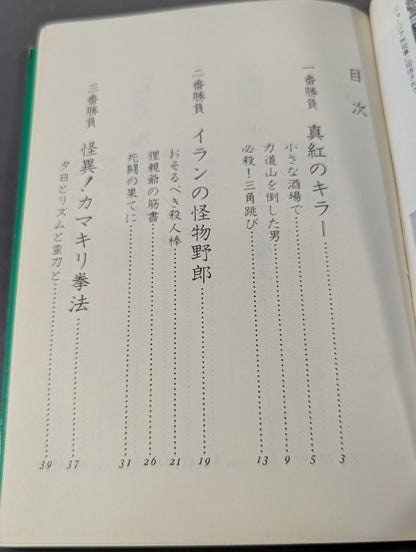 目次
一番勝負 真紅のキラー……3
小さな酒場で……5
力道山を倒した男……9
必殺！三角跳び……13
二番勝負 イランの怪物野郎……19
おそるべき殺人棒……21
狸親爺の筋書……26
死闘の果てに……31
三番勝負 怪異！カマキリ拳法……37
夕日とリズムと蛮刀と……39